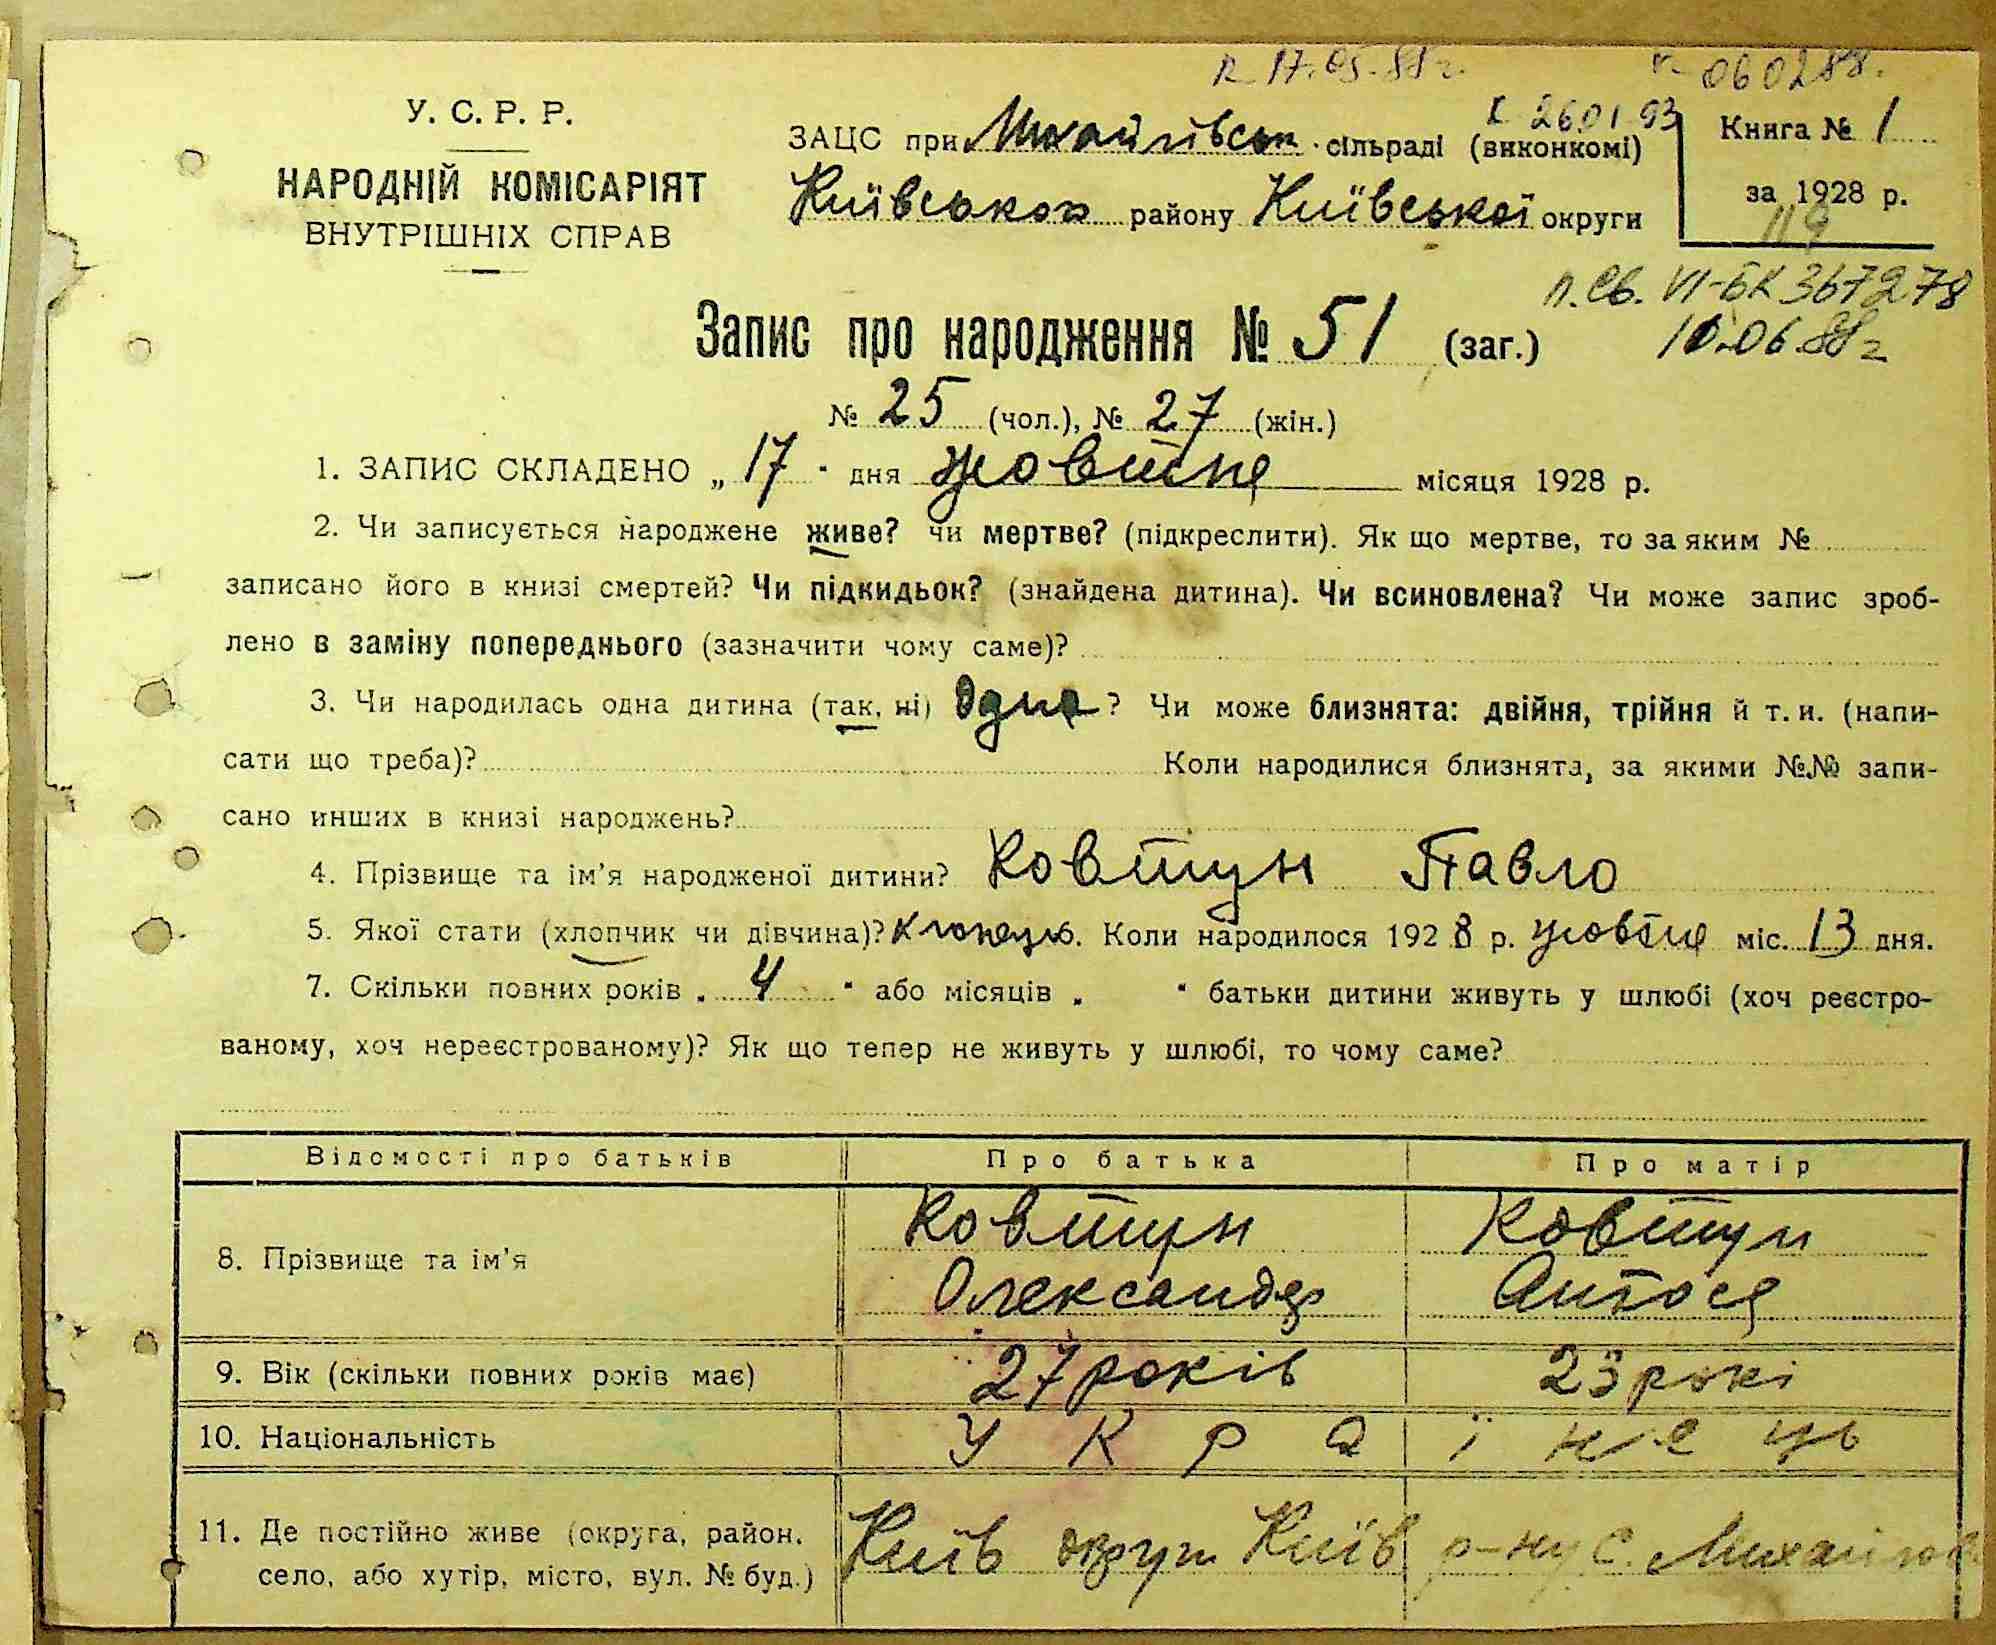 17.05.88 г. 060288.
У. С. Р. Р.
НАРОДНІЙ КОМІСАРІЯТ
ВНУТРІШНІХ СПРАВ
26.01.93
ЗАЦС при сільраді (виконкомі)
Київського району Київської округи
Книга № 1
за 1928 р.
119
п. св. VI-БК 367278
10.06.88 г
Запис про народження № 51 (заг.)
№ 25 (чол.), № 27 (жін.)
1. ЗАПИС СКЛАДЕНО „ 17 " дня жовтня місяця 1928 р.
2. Чи записується народжене живе? чи мертве? (підкреслити). Як що мертве, то за яким №
записано його в книзі смертей? Чи підкидьок? (знайдена дитина). Чи всиновлена? Чи може запис зроб-
лено в заміну попереднього (зазначити чому саме)?
3. Чи народилась одна дитина (так, ні) Одна? Чи може близнята: двійня, трійня й т. и. (напи-
сати що треба)? Коли народилися близнята, за якими №№ запи-
сано инших в книзі народжень?
4. Прізвище та ім'я народженої дитини? Ковтун Павло
5. Якої стати (хлопчик чи дівчина)? Коли народилося 1928 р. жовтня міс. 13 дня.
7. Скільки повних років „ 4 " або місяців „ " батьки дитини живуть у шлюбі (хоч реєстро-
ваному, хоч нереєстрованому)? Як що тепер не живуть у шлюбі, то чому саме?
Відомості про батьків Про батька Про матір
8. Прізвище та ім'я Ковтун Олександр Ковтун Антося
9. Вік (скільки повних років має) 27 років 23 рокі
10. Національність Українець
11. Де постійно живе (округа, район, Київ округи Київ р-ну с.
село, або хутір, місто, вул. № буд.)